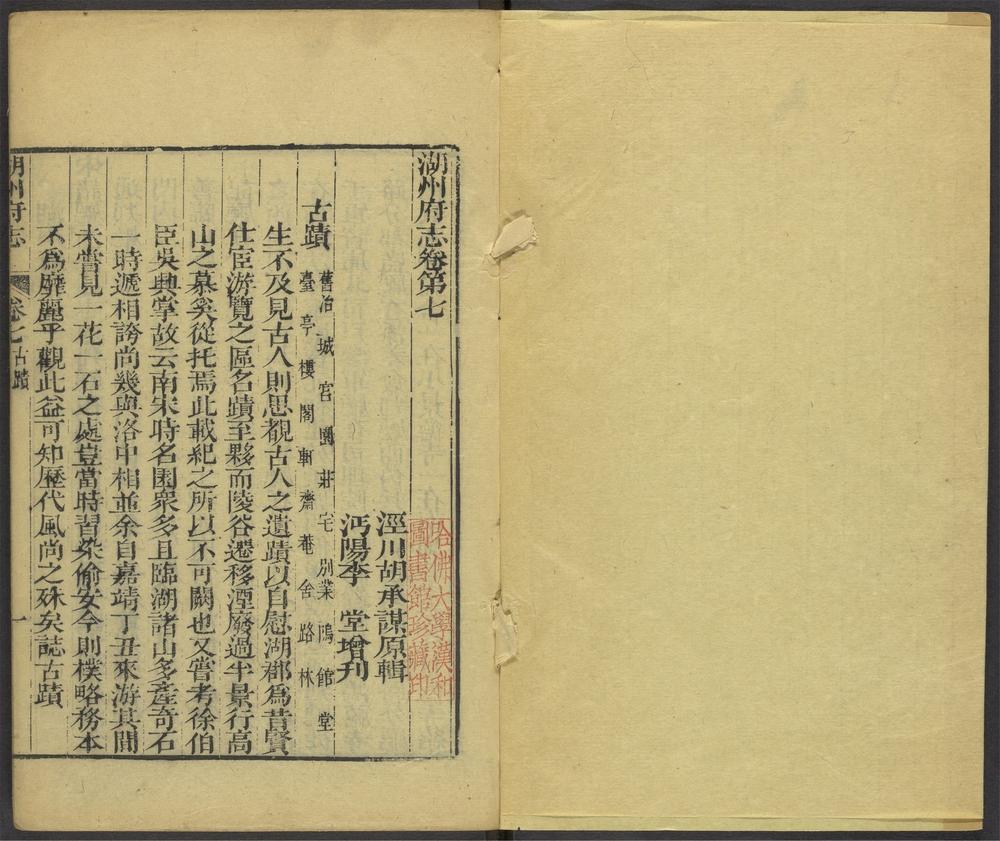 湖州府志卷第七
涇川胡承謀原輯
沔陽李　堂增刊
古蹟
舊冶　城　宮　園　莊　宅　別業　塢　館　堂
臺　亭　樓　閣　軒　齋　菴　舍　路　林
生不及見古人則思覩古人之遺蹟以自慰湖郡為昔賢
仕宦游覽之區名蹟至夥而陵谷遷移湮廢過半景行高
山之慕奚從托焉此載紀之所以不可闕也又嘗考徐伯
臣吳興掌故云南宋時名園衆多且臨湖諸山多產奇石
一時遞相誇尚幾與洛中相並余自嘉靖丁丑來游其間
未嘗見一花一石之處豈當時習染偷安今則樸略務本
不為靡麗乎觀此益可知歷代風尚之殊矣誌古蹟
湖州府志
卷七古蹟
一
哈佛大學漢和
圖書館珍藏印